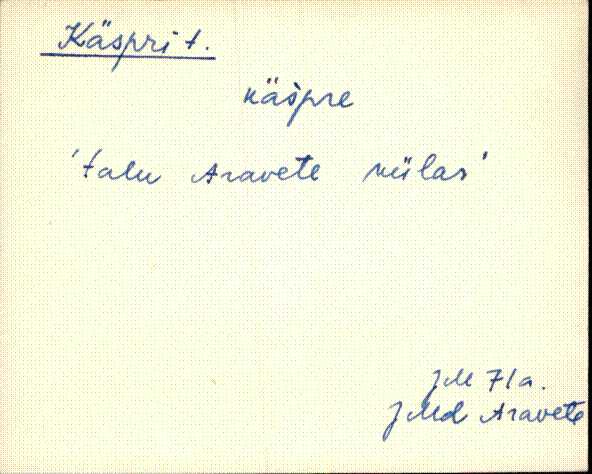 Käspri t.
käspre
'talu Aravete külas'
JM 71a.
JMd Aravete